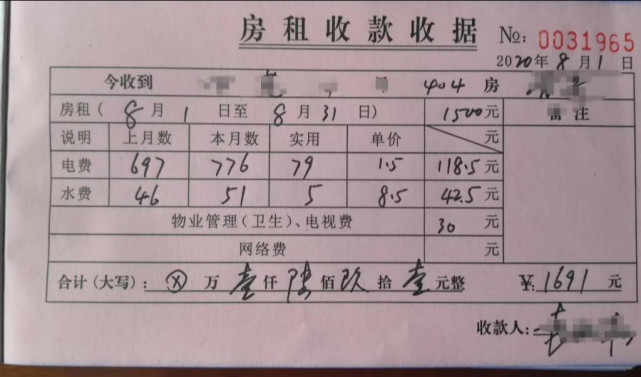 房租收款收据 №: 0031965
2020年8月1日
今收到 404房
房租(8月1日至8月31日) 1500元 备注
说明 上月数 本月数 实用 单价 元
电费 697 776 79 1.5 118.5元
水费 46 51 5 8.5 42.5元
物业管理(卫生)、电视费 30 元
网络费 元
合计(大写): ⊗ 万 壹仟 陆佰 玖拾 壹元整 ¥:1691 元
收款人: